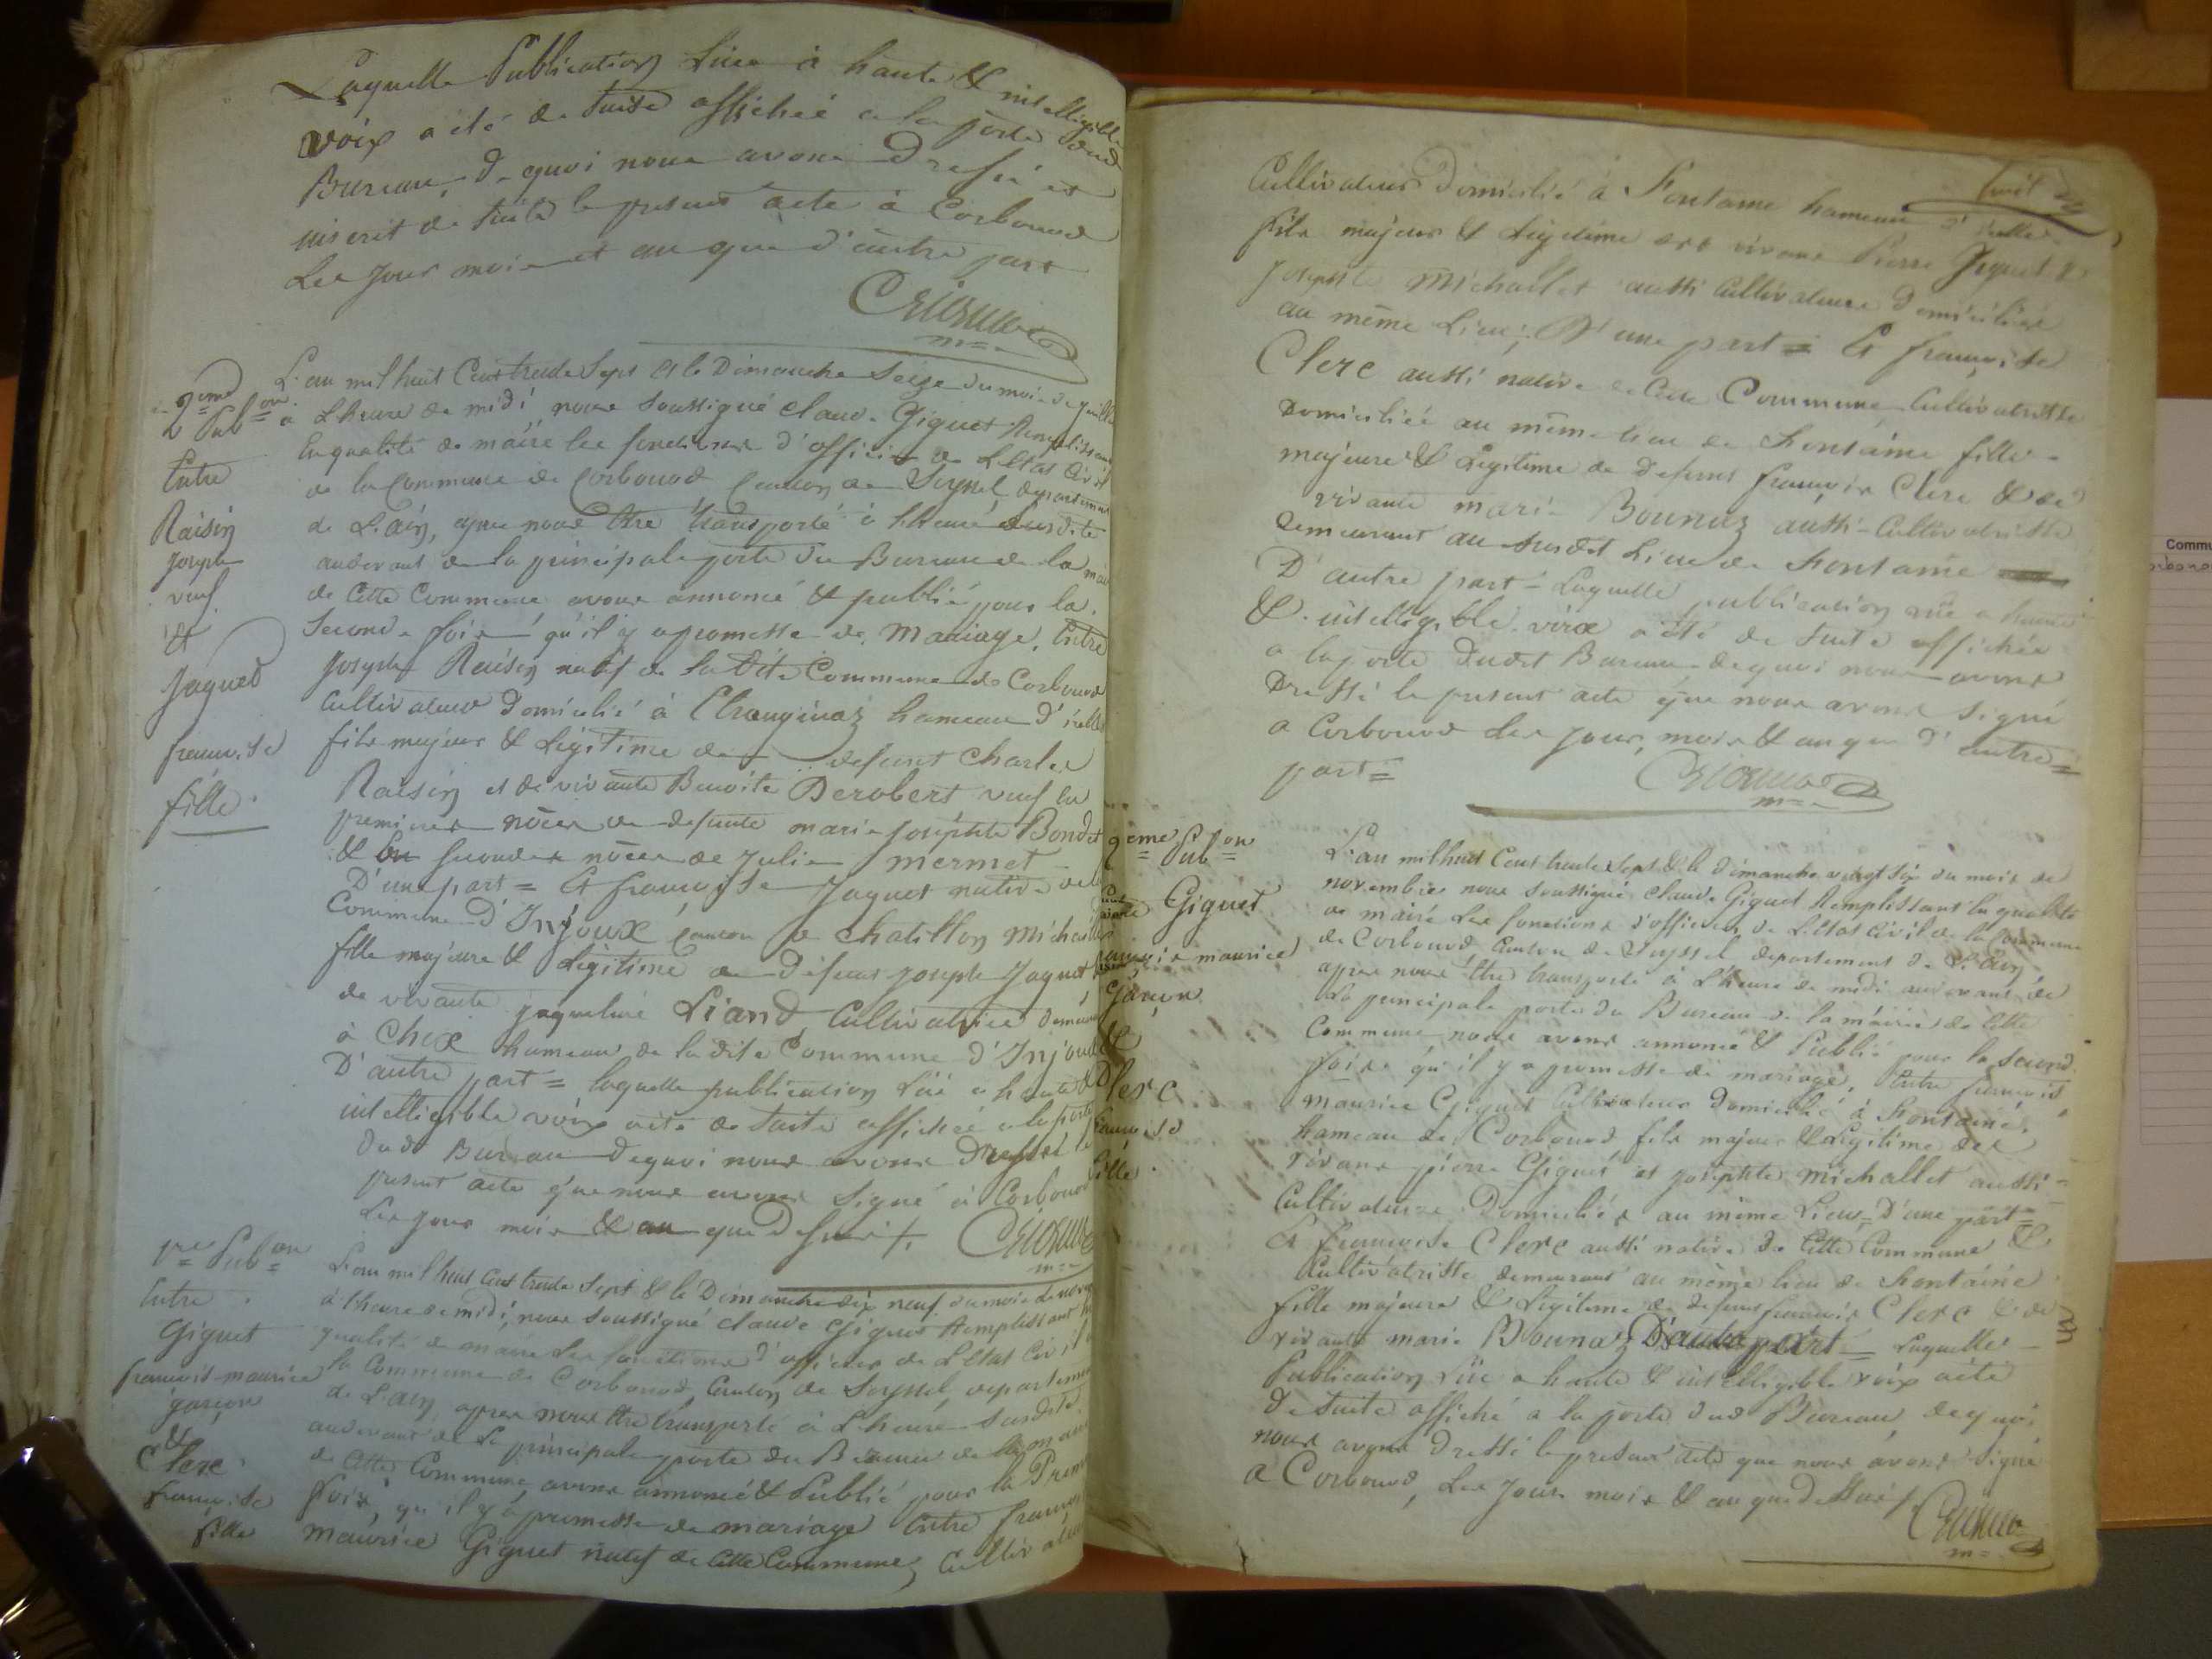 Laquelle Publication Luë à haute & intelligible
voix a été de suite affichée a la porte dud
Bureau, de quoi nous avons Dressé et
inscrit de suite le présent acte à Corbonod
Les jour mois et an que d'autre part
2eme Pubon
Entre
Raisin
Joseph
veuf
&
Jaquet
françoise
fille
L'an mil huit Cent trente Sept & le Dimanche Seize du mois de juillet
à L'heure de midi nous Soussigné Claude Giguet Remplissant
En qualité de maire les fonctions d'officier de L'Etat Civil
de la Commune de Corbonod Canton de Seyssel, departement
de L'ain, apres nous être transporté à L'heure susdite
audevant de la principale porte du Bureau de la mai
de Cette Commune avons annoncé & publié pour la
Seconde fois qu'il y a promesse de Mariage, Entre
Joseph Raisin natif de la dite Commune de Corbonod
Cultivateur Domicilié à Changinaz hameau d'icelle
fils majeur & Légitime de defunt Charles
Raisin et de vivante Benoite Derobert veuf en
premieres nôces de defunte marie Josephte Bondet
& en secondes nôces de Julie mermet
D'une part = Et françoise Jaquet native de la
Commune D'Injoux Canton de Chatillon Michaille
fille majeure & Légitime de Défunt Joseph Jaquet
de vivante Jaqueline Liand, Cultivatrice demeura
à Chex hameau de la dite Commune d'Injoux
D'autre part = laquelle publication Lüe à haute &
intelligible voix a été de suite affichée a la porte
Dud Bureau dequoi nous avons Dressé le
présent acte que nous avons Signé à Corbonod
Les jour mois & an que Dessus
1re Pubon
Entre
Giguet
françois-maurice
garçon
&
Clerc
françoise
fille
L'an mil huit Cent trente Sept & le Dimanche dix neuf du mois de nove
à L'heure de midi, nous Soussigné Claude Giguet Remplissant
qualité de maire les fonctions d'officier de L'Etat Civil
la Commune de Corbonod, Canton de Seyssel, departemen
de L'ain apres nous être transporté à L'heure Susdite
audevant de la principale porte du Bureau de la mairie
de Cette Commune, avons annoncé & Publié pour la Prem
fois, qu'il y a promesse de mariage Entre françois
Maurice Giguet natif de Cette Commune, Cultivateur
Cultivateur Domicilié à Fontaine hameau d'icelle
fils majeur & Légitime des vivans Pierre Giguet &
Josephte Michallet aussi Cultivateurs Domiciliés
au même Lieu; D'une part = Et françoise
Clerc aussi native de Cette Commune Cultivatrisse
Domiciliée au même lieu de Fontaine fille
majeure & Legitime de defunt françois Clerc & de
vivante marie Bounaz aussi Cultivatrisse
demeurant au susdit Lieu de Fontaine
D'autre part = Laquelle publication Luë a haute
& intelligible voix a été de suite affichée
a la porte dudit Bureau dequoi nous avons
Dressé le présent acte que nous avons Signé
a Corbonod Les jour, mois & an que d'autre
part =
2eme Pubon
Giguet
françois maurice
Garçon
Clerc
françoise
fille
L'an mil huit Cent trente Sept & le dimanche vingt Six du mois de
novembre nous soussigné Claude Giguet Remplissant la qualité
de maire les fonctions d'officier de L'Etat civil de la Commune
de Corbonod Canton de Seyssel departement de L'ain
apres nous être transporté à L'heure de midi audevant de
La principale porte du Bureau de la mairie de Cette
Commune nous avons annoncé & Publié pour la Second
fois qu'il y a promesse de mariage, Entre françois
maurice Giguet Cultivateur Domicilié à Fontaine,
hameau de Corbonod fils majeur & Légitime des
vivans pierre Giguet et josephte michallet aussi
Cultivateurs Domiciliés au même Lieu = D'une part =
Et françoise Clerc aussi native de Cette Commune &
Cultivatrisse demeurant au même lieu de Fontaine
fille majeure & Légitime de defunt françois Clerc & de
vivante marie Bounaz D'autre part = Laquelle
Publication Lüe a haute & intelligible voix a été
de suite affiché a la porte dud Bureau dequoi
nous avons dressé le présent acte que nous avons Signé
a Corbonod, Les jour mois & an que dessus